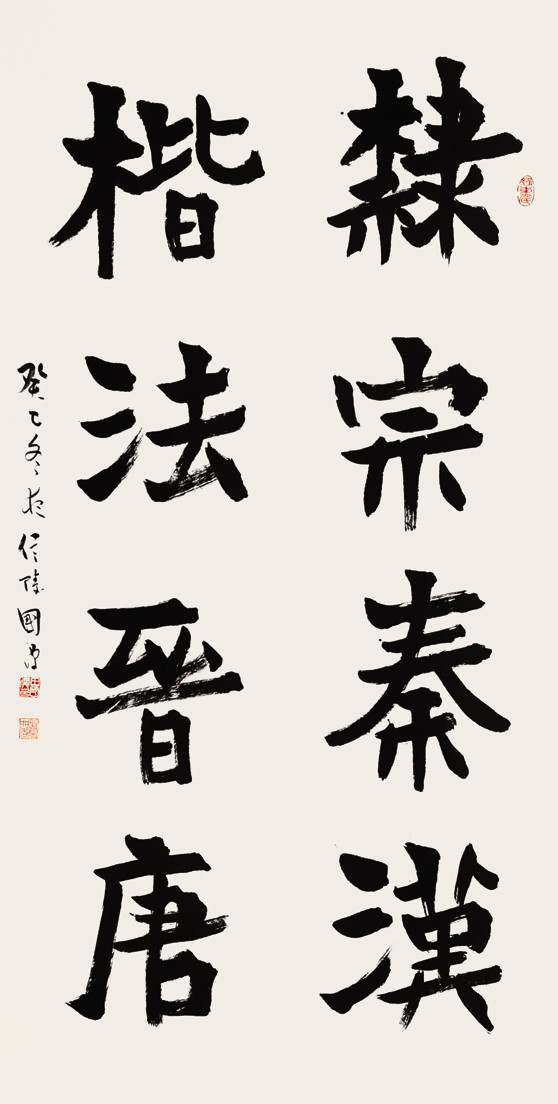 隸宗秦漢
楷法晉唐
癸巳冬夜 信陵國